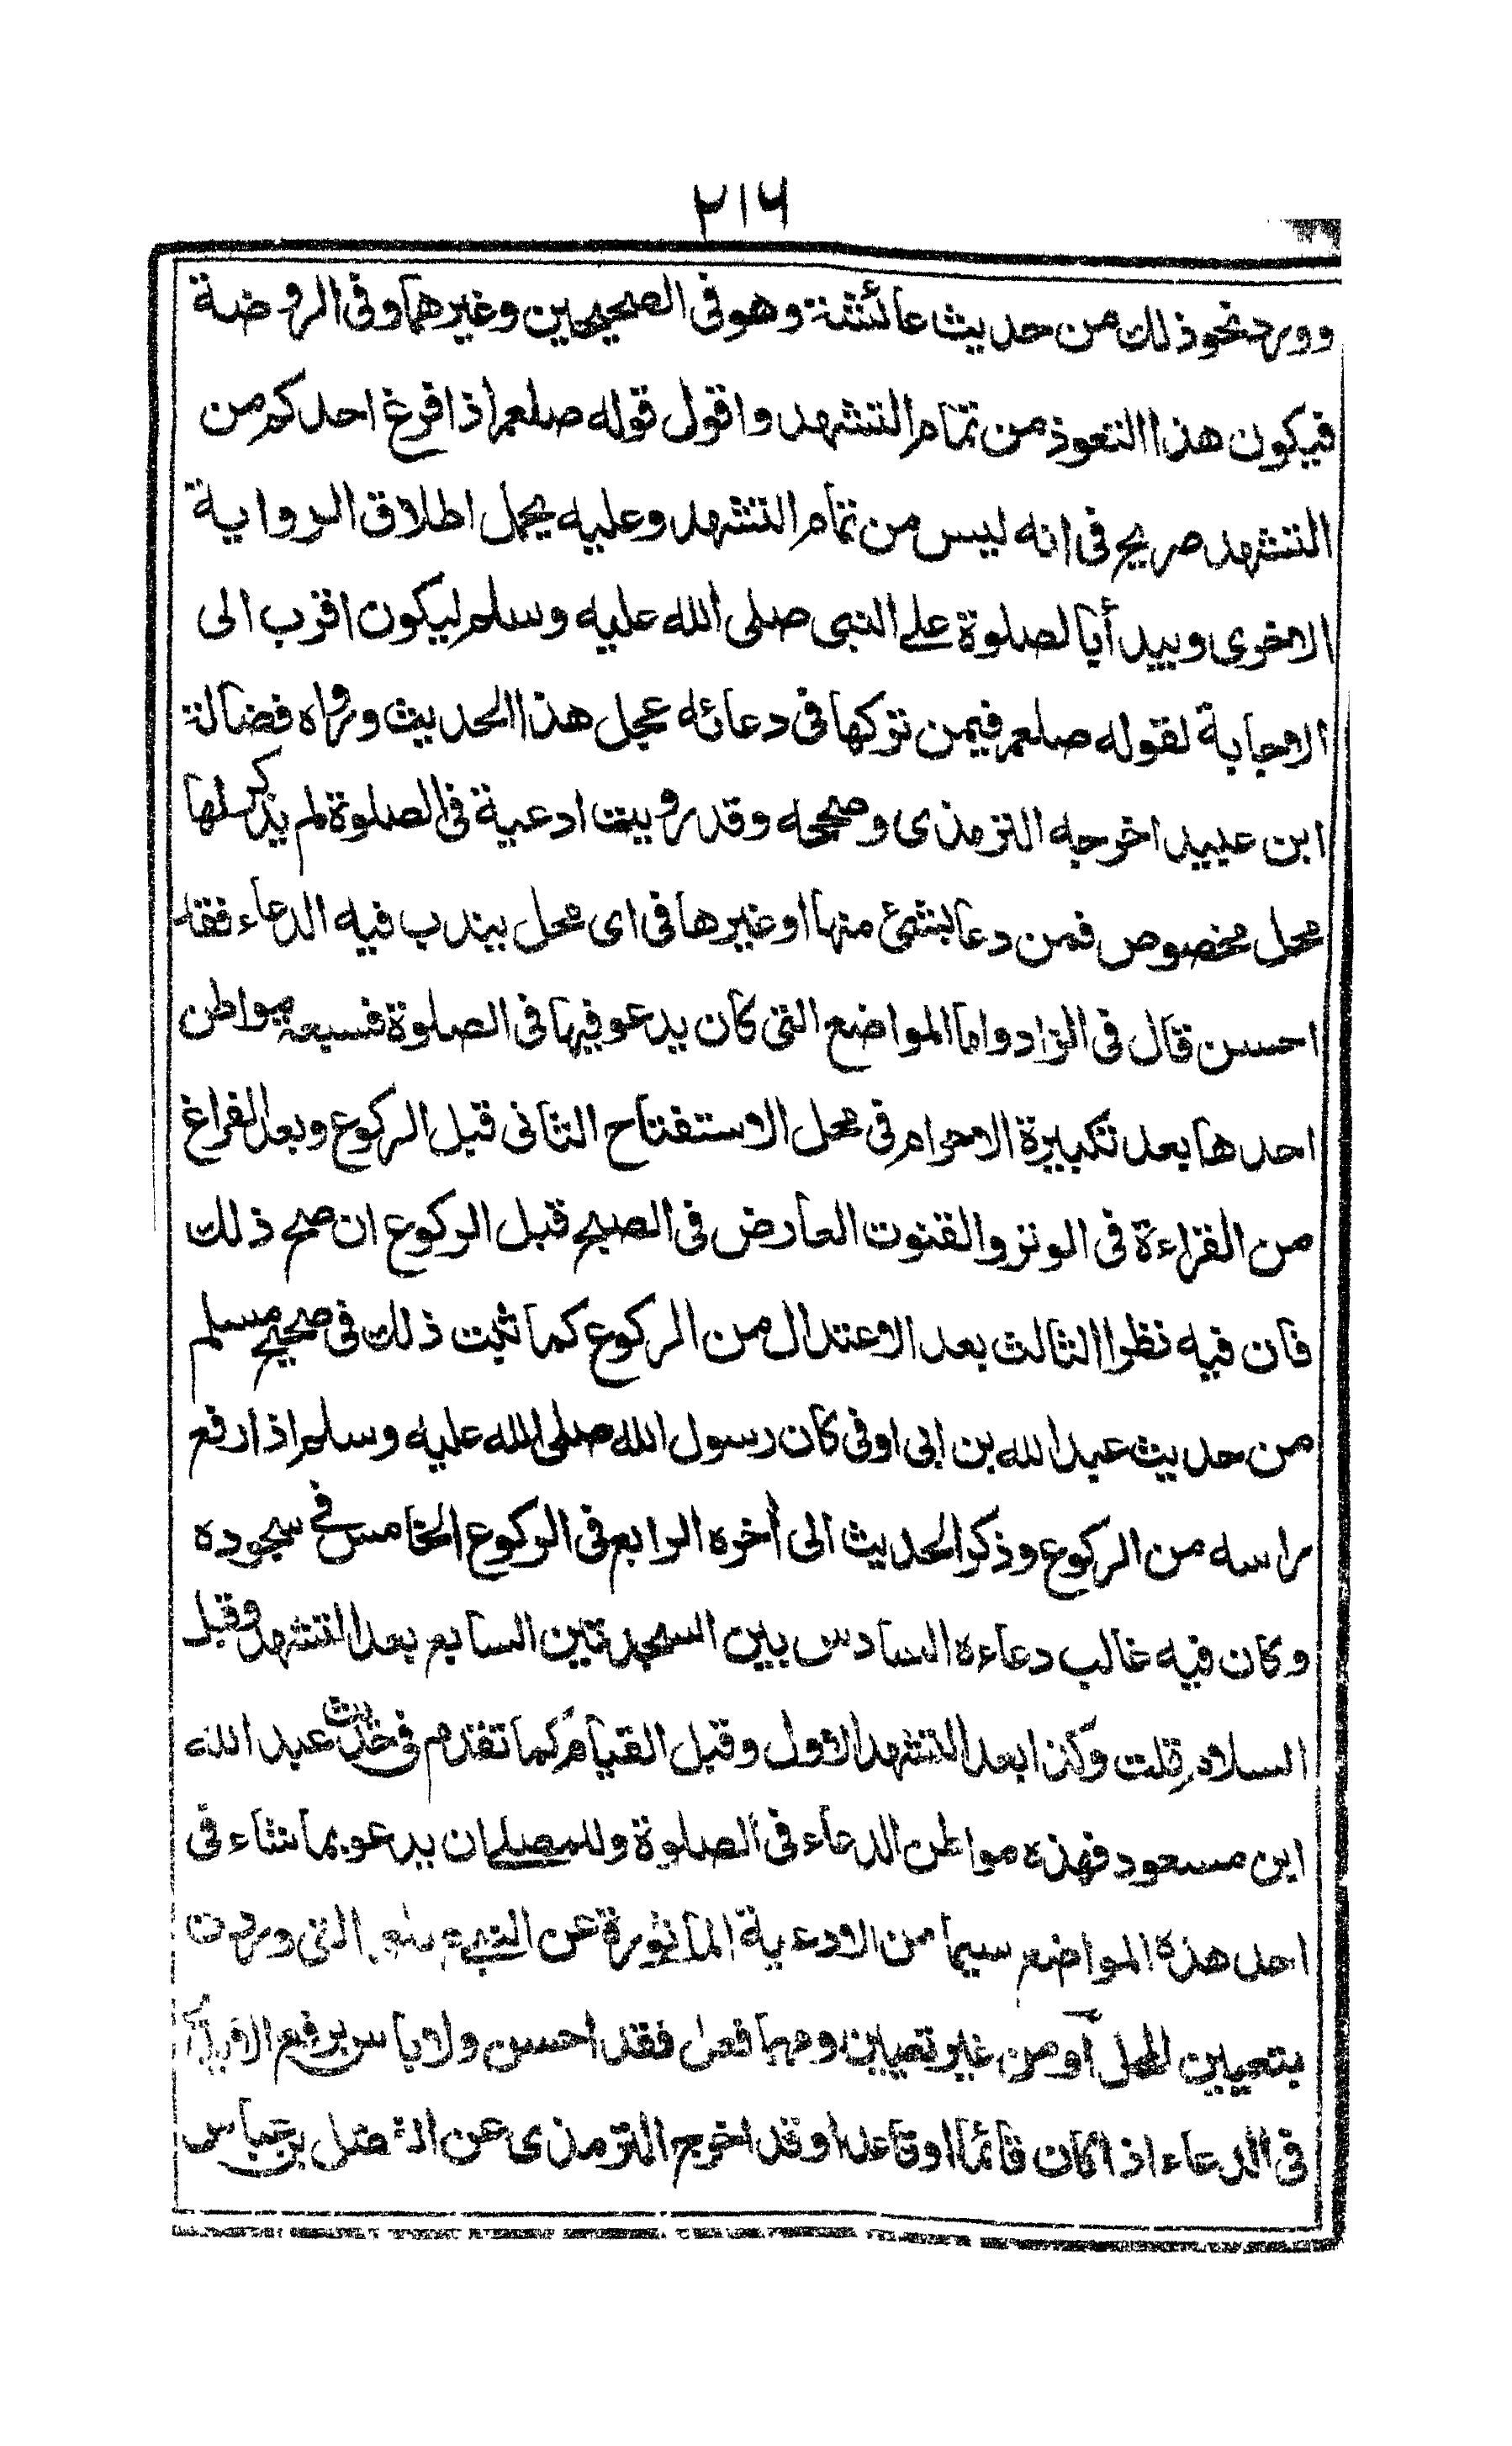 ٢١٦
وورد نحو ذلك من حديث عائشة وهو فى الصحيحين وغيرهما وفى الروضة
فيكون هذا التعوذ من تمام التشهد واقول قوله صلعم اذا فرغ احدكم من
التشهد صريح فى انه ليس من تمام التشهد وعليه يحمل اطلاق الرواية
الاخرى ويبدأ بالصلوة على النبى صلى الله عليه وسلم ليكون اقرب الى
الاجابة لقوله صلعم فيمن تركها فى دعائه عجل هذا الحديث ورواه فضالة
ابن عبيد اخرجه الترمذى وصححه وقد رويت ادعية فى الصلوة لم يذكر لها
محل مخصوص فمن دعا بشئ منها او غيرها فى اى محل يندب فيه الدعاء فقد
احسن قال فى الزاد واما المواضع التى كان يدعو فيها فى الصلوة فسبعة مواطن
احدها بعد تكبيرة الاحرام فى محل الاستفتاح الثانى قبل الركوع وبعد الفراغ
من القراءة فى الوتر والقنوت العارض فى الصبح قبل الركوع ان صح ذلك
فان فيه نظرا الثالث بعد الاعتدال من الركوع كما ثبت ذلك فى صحيح مسلم
من حديث عبد الله بن ابى اوفى كان رسول الله صلى الله عليه وسلم اذا رفع
راسه من الركوع وذكر الحديث الى أخره الرابع فى الركوع الخامس فى سجوده
وكان فيه غالب دعاءه السادس بين السجدتين السابع بعد التشهد وقبل
السلام قلت وكذا بعد التشهد الاول وقبل القيام كما تقدم فى حديث عبد الله
ابن مسعود فهذه مواطن الدعاء فى الصلوة وللمصلى ان يدعو بما شاء فى
احد هذه المواضع سيما من الادعية المأثورة عن النبى التى وردت
بتعيين المحل أو من غير تعيين ومهما فعل فقد احسن ولا باس برفع
فى الدعاء اذا كان قائما او قاعدا وقد اخرج الترمذى عن الفضل بن عباس